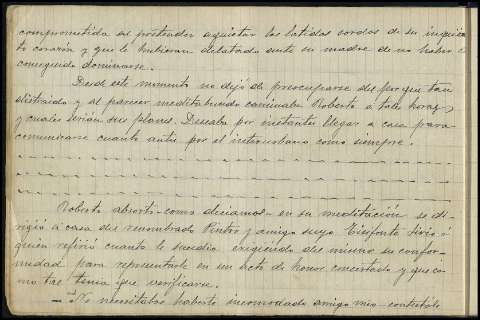 comprometida al pretender aquietar los latidos sordos de su inquie
to corazón y que le hubieran delatado ante su madre de no haber
conseguido dominarse.
Desde este momento no dejó de preocuparse del por que tan
distraido y al parecer meditabundo caminaba Roberto á tales horas
y cuales serían sus planes. Deseaba por instantes llegar a casa para
comunicarse cuanto antes por el interurbano como siempre.
Roberto absorto-como deciamos-en su meditación se di-
rigió á casa del renombrado Pintor y amigo suyo
quien refirió cuanto le sucedia exigiendo del mismo su confor-
midad para representarle en un acto de honor concertado y que co-
mo tal tenia que verificarse.
-No necesitabas haberte incomodado amigo mio-contestóle